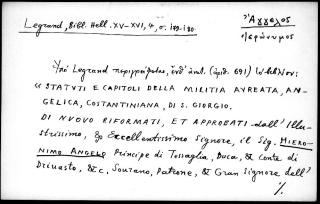 Legrand, Bibl. Hell. XV-XVI, 4, σ. 189-190.
Ἄγγελος
Ἱερώνυμος
Ὑπὸ Legrand περιγράφεται, ἐνθ' ἀνωτ. (ἀριθ. 691) τὸ βιβλίον:
« STATVTI E CAPITOLI DELLA MILITIA AVREATA, AN-
GELICA, COSTANTINIANA, DI S. GIORGIO.
DI NUOVO RIFORMATI, ET APPROBATI dall' Illu-
strissimo, & Excellentissimo Signore, il Sig. HIERO-
NIMO ANGELO Principe di Tessaglia, Duca, & Conte di
Driuasto, & c, Sourano, Patrone, & Gran Signore dell'
%